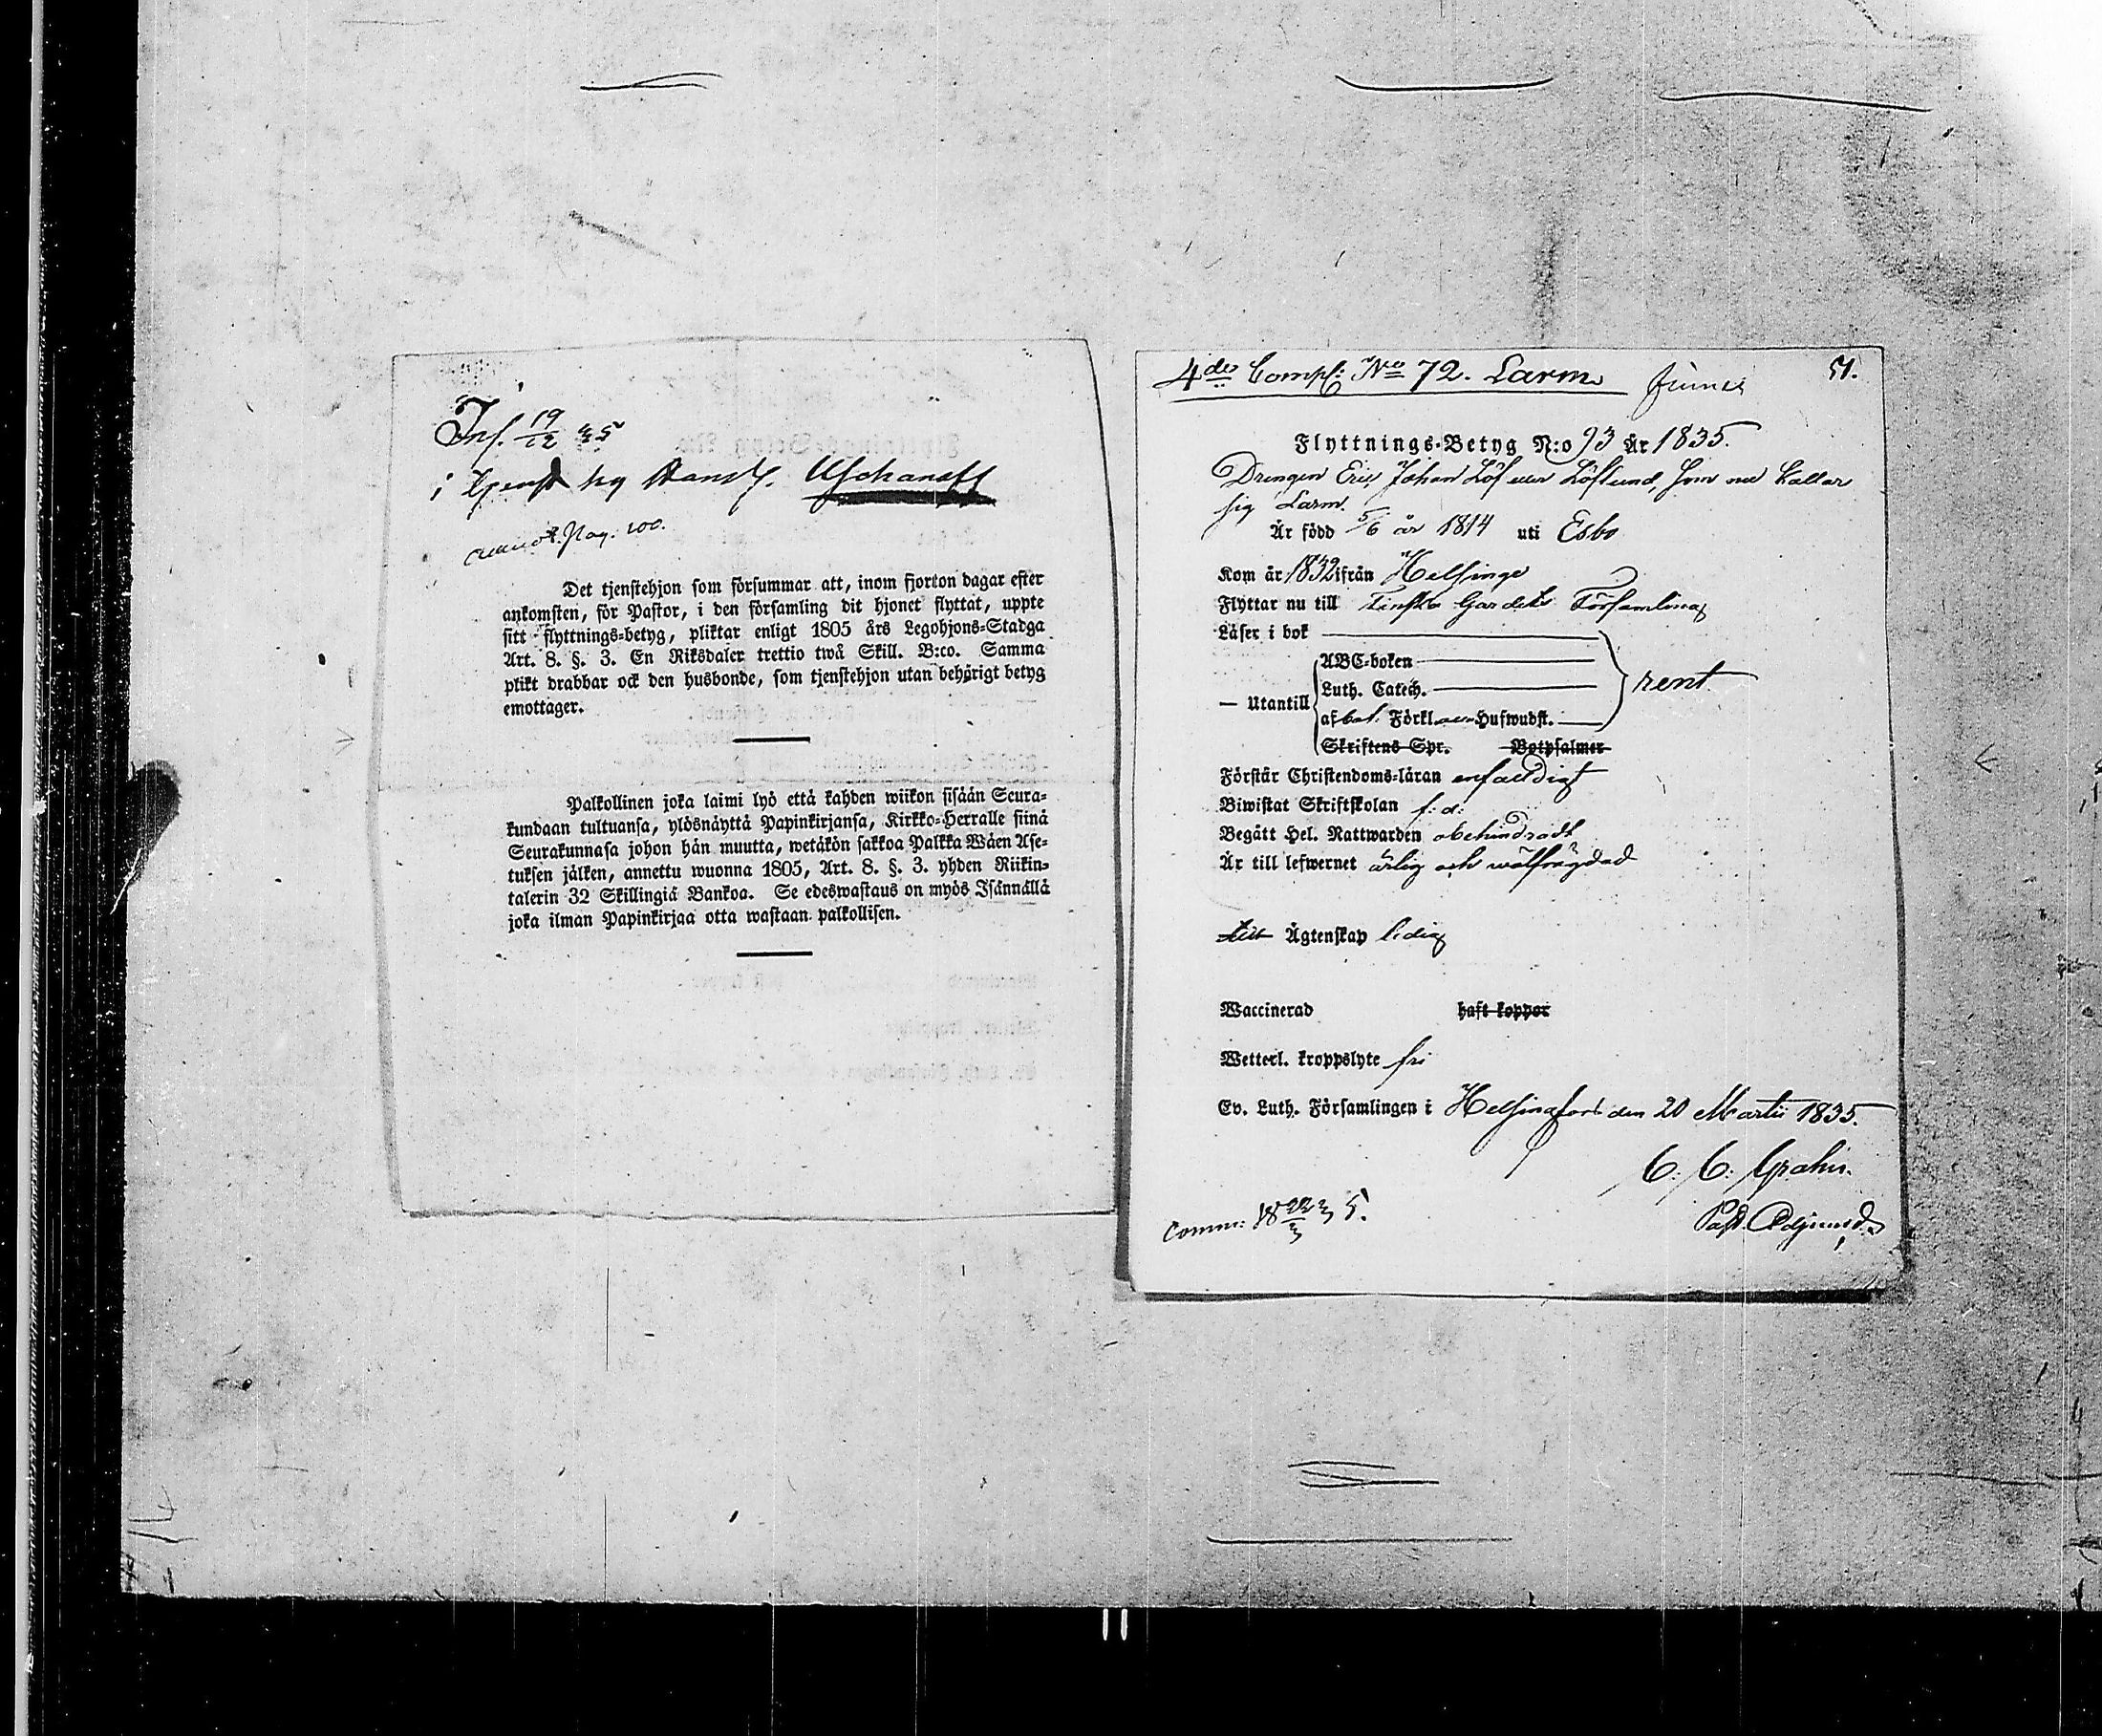 Inf. 19/12 35
i tjenst hg Handl. Uschanoff
Pag. 100.
Det tjenstehjon som försummar att, inom fjorton dagar efter
ankomsten, för Pastor, i den församling dit hjonet flyttat, uppte
sitt flyttnings-betyg, pliktar enligt 1805 års Legohjons-Stadga
Art. 8. §. 3. En Riksdaler trettio twå Skill. B:co. Samma
plikt drabbar ock den husbonde, som tjenstehjon utan behörigt betyg
emottager.
Palkollinen joka laimi lyö että kahden wiikon sisään Seura-
kundaan tultuansa, ylösnäyttä Papinkirjansa, Kirkko-Herralle siinä
Seurakunnasa johon hän muutta, wetäkön sakkoa Palkka Wäen Ase-
tuksen jälken, annettu wuonna 1805, Art. 8. §. 3. yhden Riikin-
talerin 32 Skillingiä Bankoa. Se edeswastaus on myös Isännällä
joka ilman Papinkirjaa otta wastaan palkollisen.
4de Comp: No 72. Larm 51.
Flyttnings-Betyg N:o 93 År 1835.
Drengen Eric Johan Löf eller Löflund, som nu kallar
sig Larm.
Är född 5/6 år 1814 uti Esbo
Kom år 1832 ifrån Helsinge
Flyttar nu till Finska Gardets Församling
Läser i bok
ABC-boken
Luth. Catech.
rent
— Utantill
af Förkl. Hufwudst.
Skriftens Spr. Botpsalmer
Förstår Christendoms-läran enfaldigt
Biwistat Skriftskolan f: d:
Begått Hel. Nattwarden obehindradt
Är till lefwernet ärlig och wälfrägdad
Ägtenskap ledig
Waccinerad haft koppor
Wetterl. kroppslyte fri
Ev. Luth. Församlingen i Helsingfors den 20 Martii 1835.
C: C: Grahn.
Past. Adjunct.
Comm: 18 22/3 35.